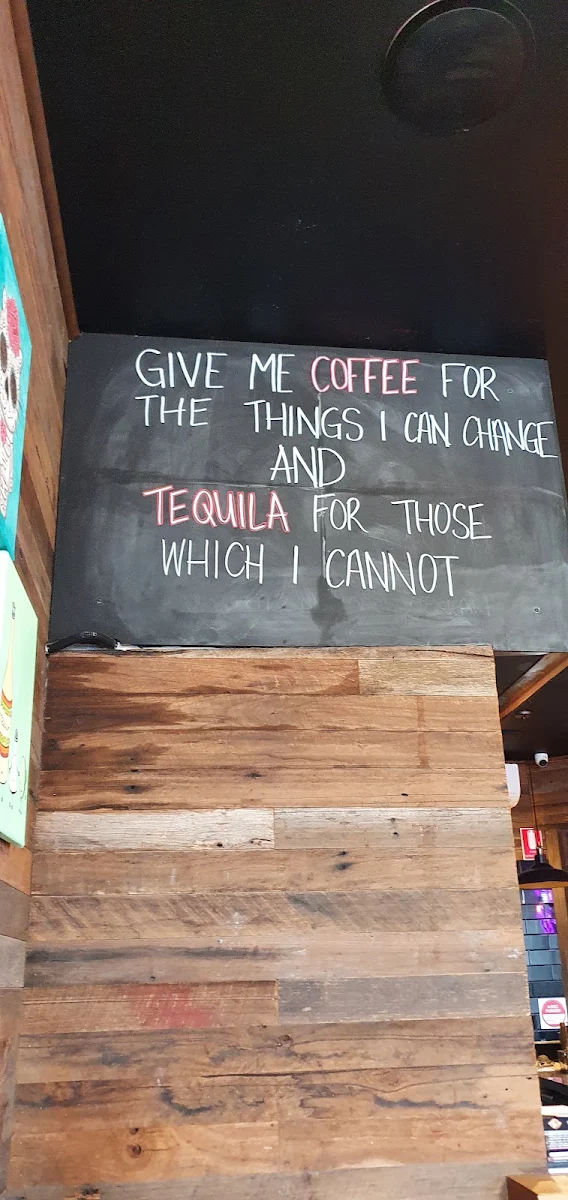 GIVE ME COFFEE FOR
THE THINGS I CAN CHANGE
AND
TEQUILA FOR THOSE
WHICH I CANNOT